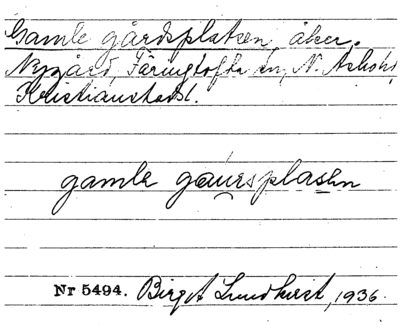 Gamle gårdsplatsen, åker.
Nygård, Färingtofta sn, N. Åsbohd,
Kristianstadsl.
gamle gäuersplasen
Nr 5494. Birgit Lundkvist, 1936.